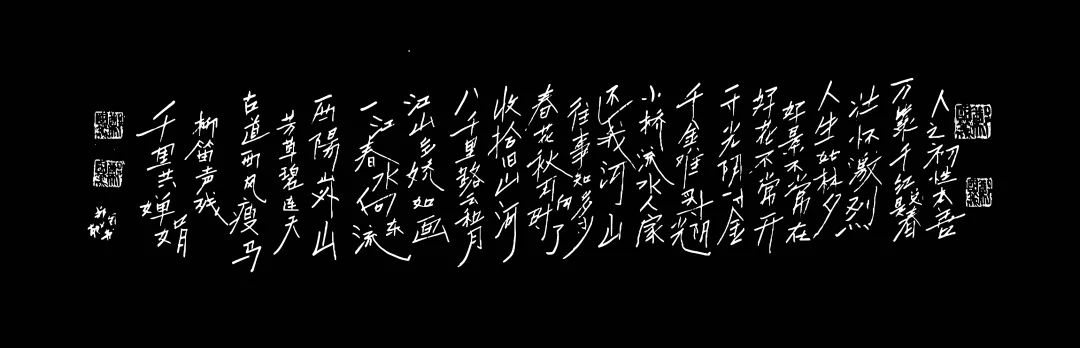 人之初性本善
万紫千红春
壮怀激烈
人生如梦
好景不常在
好花不常开
一寸光阴一寸金
千金难买寸光阴
小桥流水人家
还我河山
往事知多少
春花秋月何时了
收拾旧山河
八千里路云和月
江山多娇如画
一江春水向东流
夕陽山外山
芳草碧连天
古道西风瘦马
柳笛声残
千里共婵娟